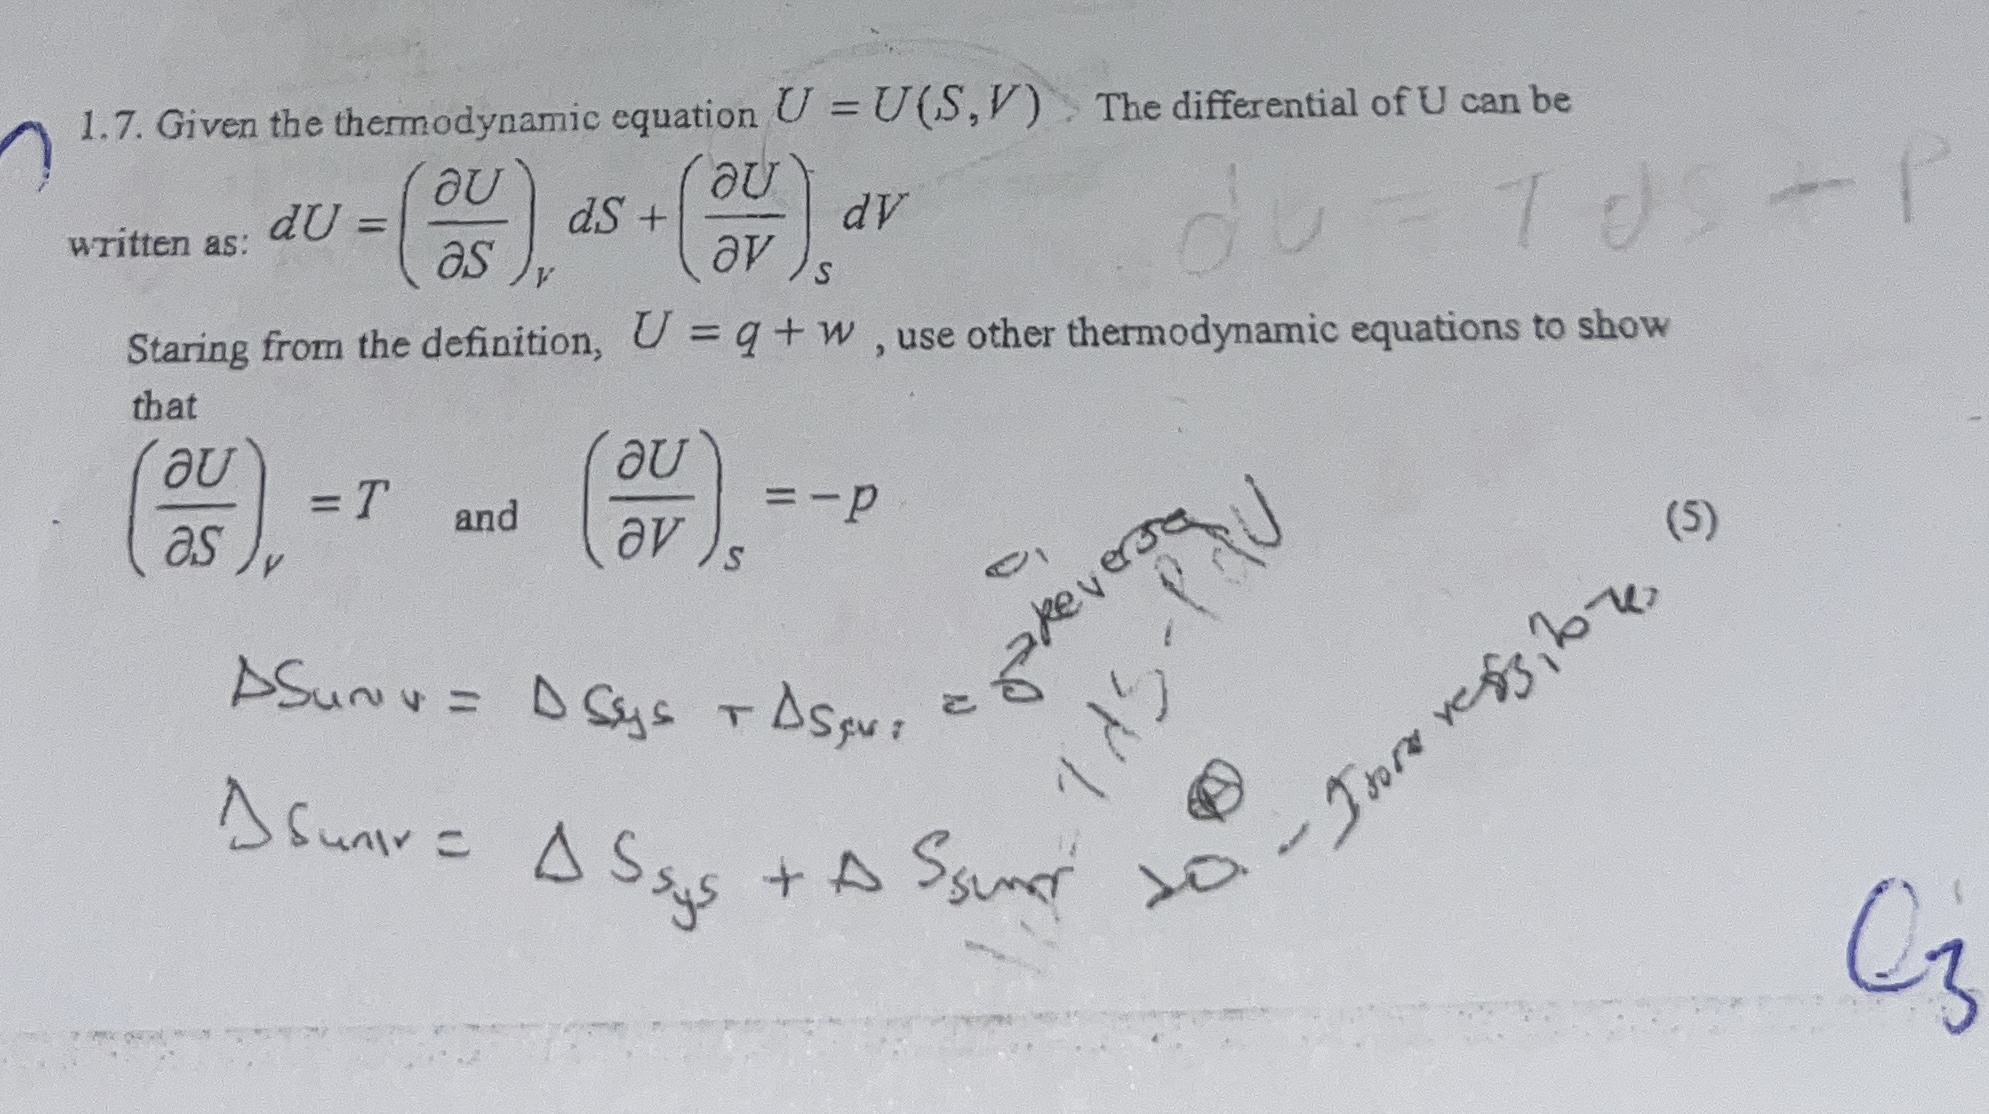 1.7. Given the thermodynamic equation U = U(S,V) The differential of U can be
written as: dU = (∂U/∂S)_V dS + (∂U/∂V)_S dV
dU = T dS + P
Staring from the definition, U = q + w , use other thermodynamic equations to show
that
(∂U/∂S)_V = T and (∂U/∂V)_S = -p
(5)
ΔSuniv = ΔSsys + ΔSsur =
ΔSuniv = ΔSsys + ΔSsurr >0. -